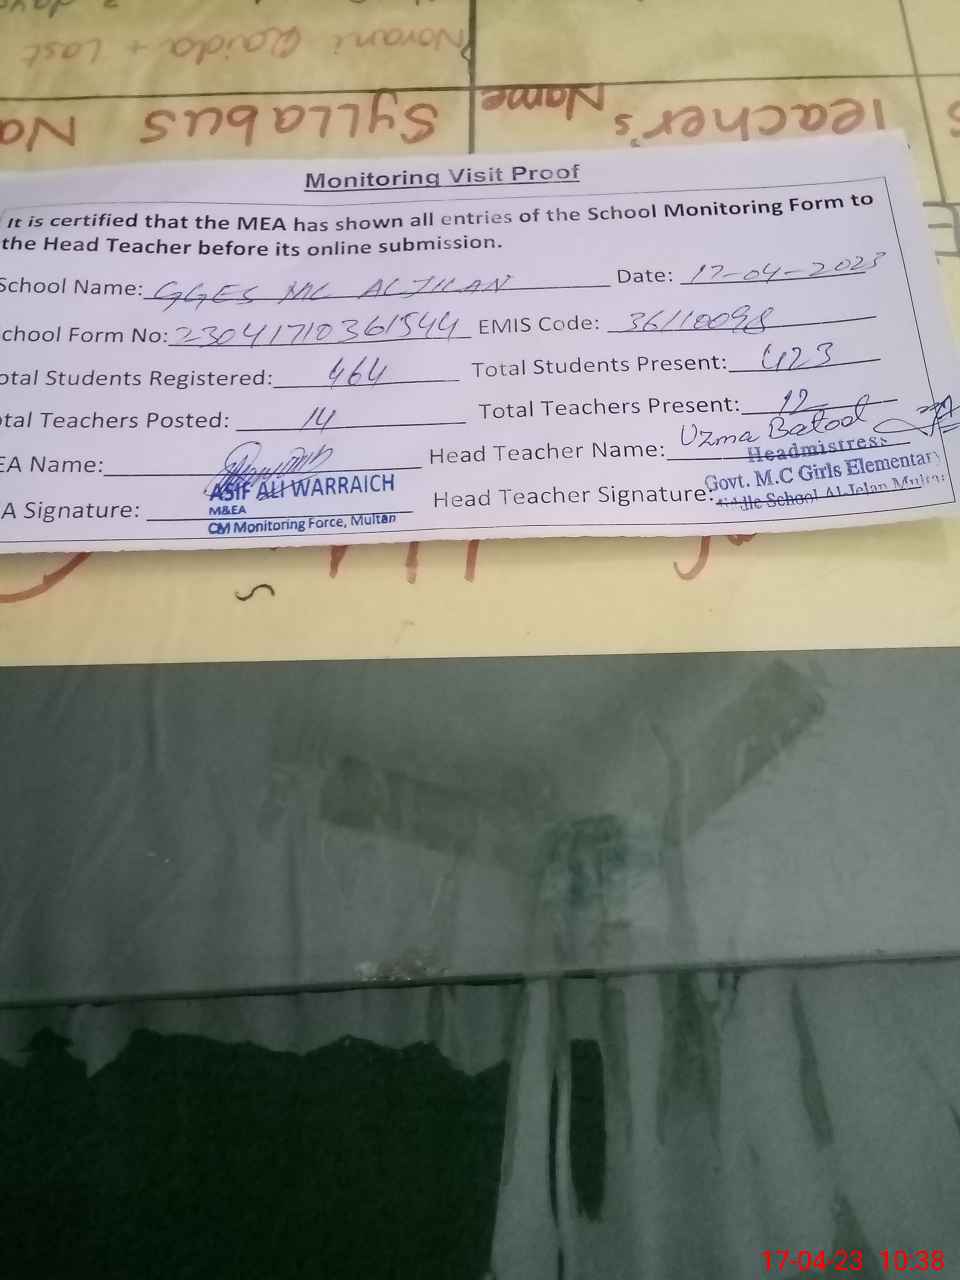 Norani Qaida + Last
Teacher's Name Syllabus Na
Monitoring Visit Proof
It is certified that the MEA has shown all entries of the School Monitoring Form to
the Head Teacher before its online submission.
School Name: GGES MC AL JILAN Date: 17-04-2023
chool Form No: 23041710361544 EMIS Code: 36110098
otal Students Registered: 464 Total Students Present: 423
tal Teachers Posted: 14 Total Teachers Present: 12
EA Name: Head Teacher Name: Uzma Batool
A Signature: Head Teacher Signature:
ASIF ALI WARRAICH
M&EA
CM Monitoring Force, Multan
Headmistress
Govt. M.C Girls Elementary
School Al-Jelan Multan
17-04-23 10:38